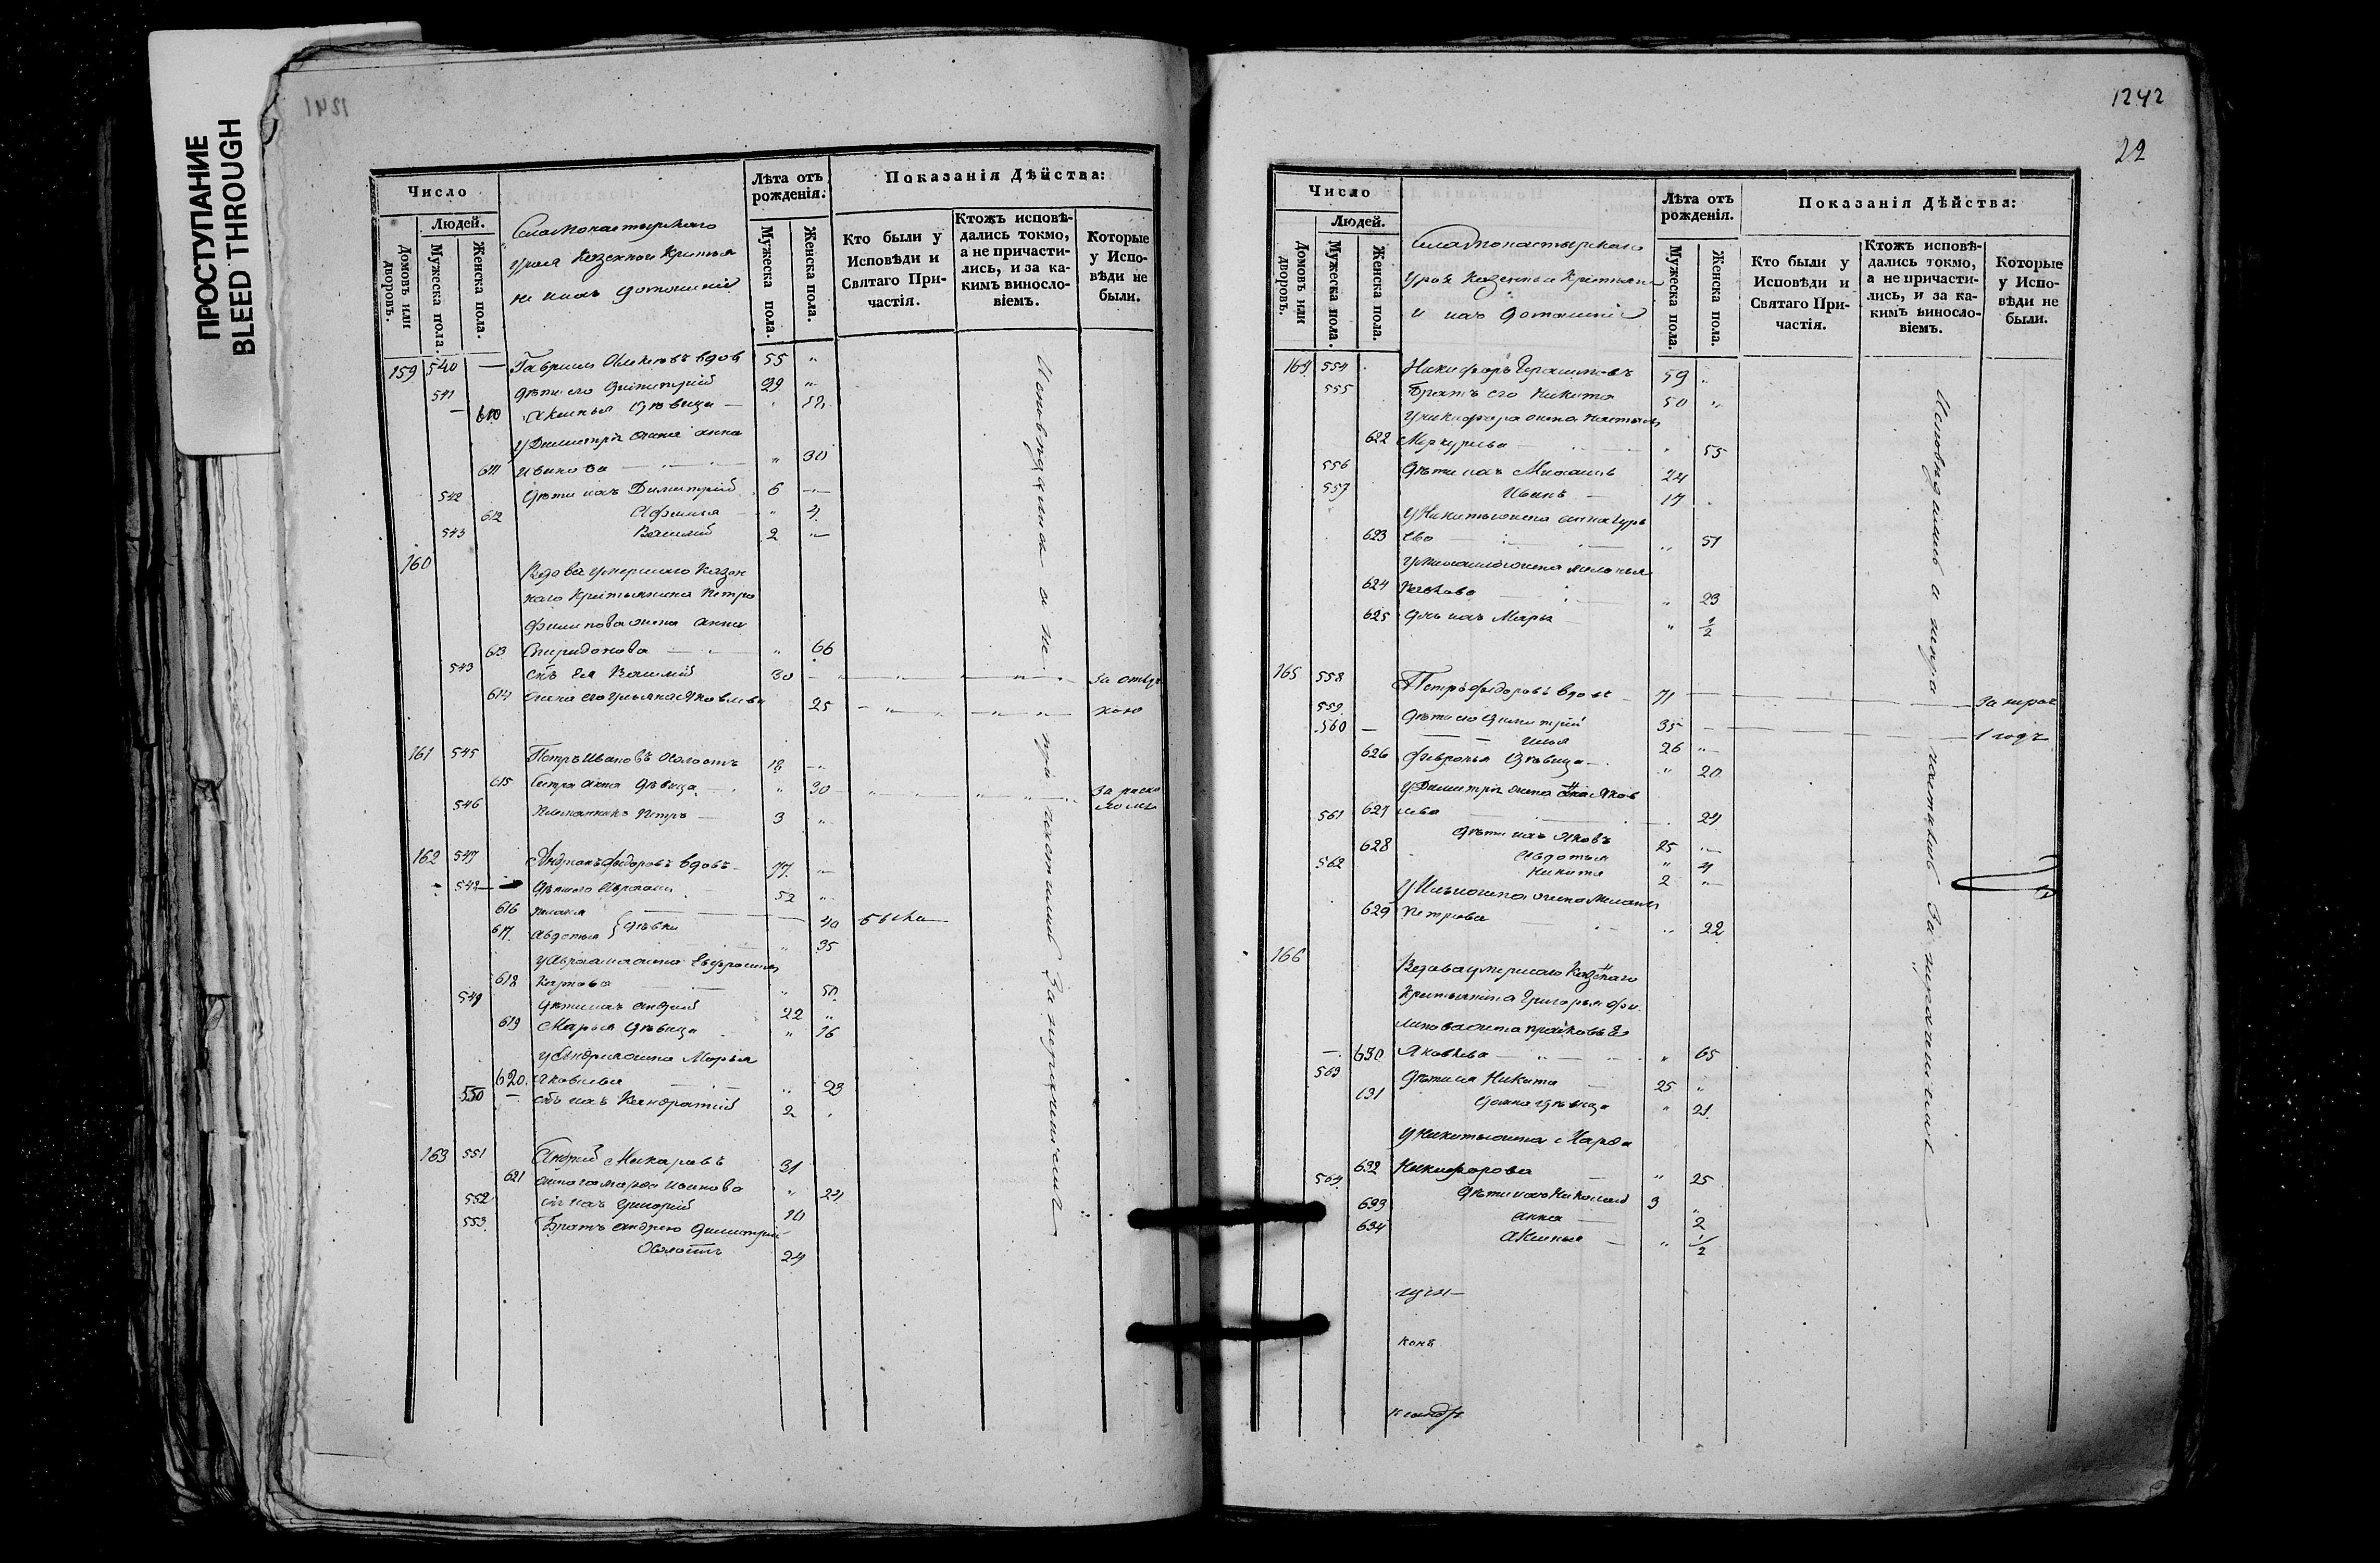 ПРОСТУПАНИЕ
BLEED THROUGH
1241
Число
Лѣта отъ рожденія.
Показанія Дѣйства:
Людей.
Домовъ или дворовъ.
Мужеска пола.
Женска пола.
Села Монастырскаго
Урала Казенныи Крестья
не и ихъ домашніи
Мужеска пола.
Женска пола.
Кто были у Исповѣди и Святаго Причастія.
Ктожъ исповѣдались токмо, а не причастились, и за какимъ винословіемъ.
Которые у Исповѣди не были.
159 540 — Гаврила вдов 55 "
541 Дѣти его Димитрій 29 "
— 610 Акилина Дѣвица —
У Димитрія жена Анна
611 Иванова — " 30
542 Дѣти ихъ Димитрій 6 —
612 " 4
543 Василий 2 —
160 Вдова умершаго Казен
наго Крестьянина Петра
Филипова жена Анна
613 Спиридонова — " 66
543 снъ Ея Василий 30 — за отлу
614 жена его Ульяна Яковлева 25 — " — чкою
161 545 Петръ Ивановъ Холостъ 18 —
615 Сестра Анна Дѣвица — " 30
546 Племянникъ Петръ — 3 "
162 547 Андріанъ Федоровъ вдовъ — 77 —
548 Дѣти его Авраамъ 52 "
616 — 40
617 Авдотья } Дѣвки " 35
была
У Авраама жена Ефросинья
618 Карпова " 50
549 Дѣти ихъ Андрей 22 "
619 Марья Дѣвица " 16
У Андрея жена Марья
620 Яковлева " 23
550 — снъ ихъ Кандратій 2 "
163 551 Андрей Макаровъ 31
621 жена его Марфа Иванова " 24
552 снъ ихъ Григорий 10
553 Братъ Андрею Димитрій
Холостъ 24
Исповѣдались а не причастились За нераченіемъ
1242
22
Число
Лѣта отъ рожденія.
Показанія Дѣйства:
Людей.
Домовъ или дворовъ.
Мужеска пола.
Женска пола.
Села Монастырскаго
Урала Казенныи Крестьяни
и ихъ домашніи
Мужеска пола.
Женска пола.
Кто были у Исповѣди и Святаго Причастія.
Ктожъ исповѣдались токмо, а не причастились, и за какимъ винословіемъ.
Которые у Исповѣди не были.
164 554 Никифоръ Герасимовъ 59 "
555 Братъ его Никита 50 "
У Никифора жена Наталья
622 Меркурьева — " 55
556 Дѣти ихъ Михаилъ 24
557 Иванъ — 17
У Никиты жена Анна Гурь
623 ева — " 51
У Михаила жена Меланья
624 — " 23
625 Дчь ихъ Марья — " 1/2
165 558 Петръ Федоровъ вдовъ — 71 —
559 Дѣти его Димитрій 35 — 1 годъ
560 — Илья 26 "
626 Февронья Дѣвица — " 20
У Димитрія жена Анна Яков
627 лева 24
561 Дѣти ихъ Яковъ 25 —
628 Авдотья " 4
562 Никита 2 "
У Ильи жена Меланья
629 Петрова " 22
166 Вдова умершаго Казеннаго
Крестьянина Григорья Фи
липова жена Прасковья
— 630 Яковлева — " — " 65
563 Дѣти ея Никита 25 "
631 Домна Дѣвица " 21
У Никиты жена Марфа
632 Никифорова — " 25
564 Дѣти ихъ Николай 3 "
633 Анна — 2
634 Акилина — " 1/2
Исповѣдались а непричастились За нераченіемъ